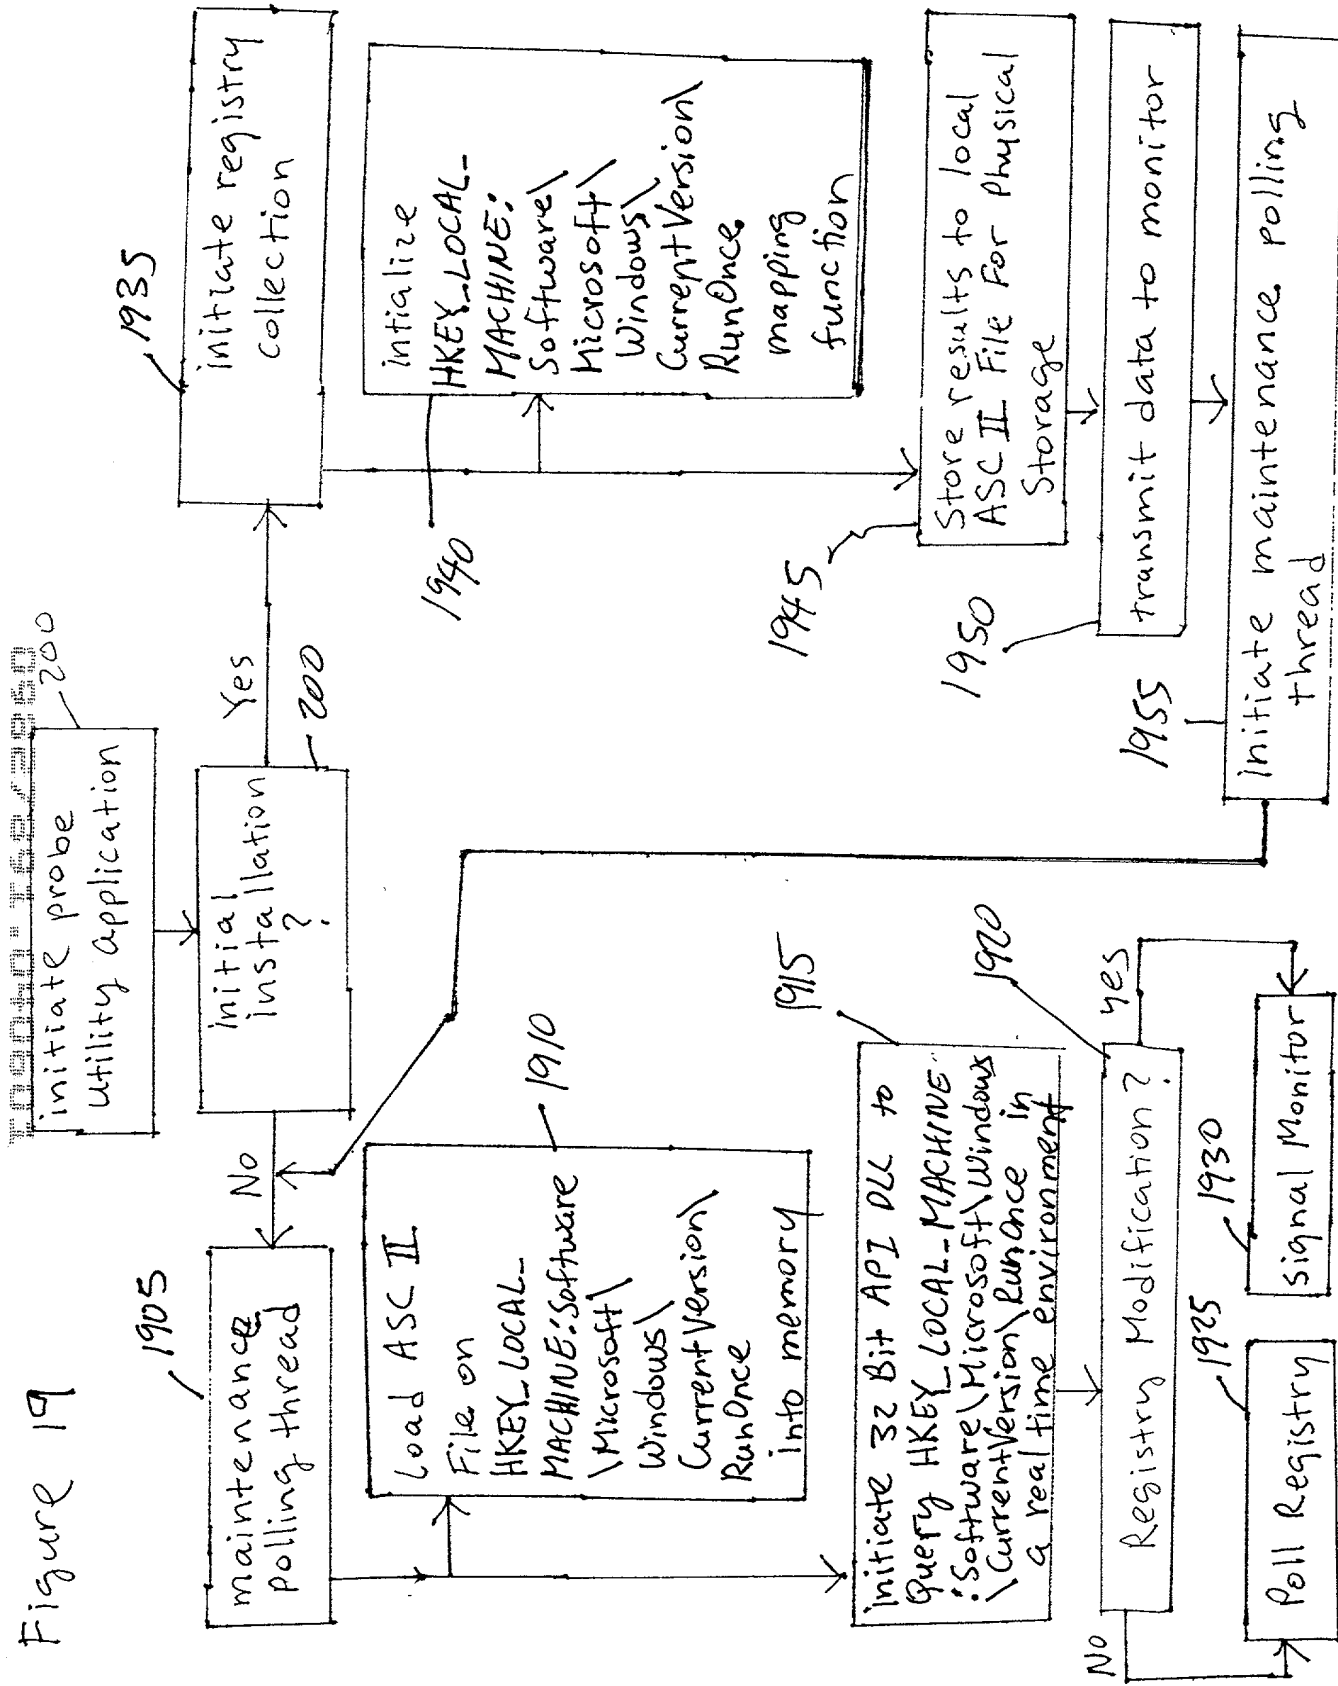 Figure 19
initiate probe
Utility application
200
initial
installation
?
200
Yes
No
1905
maintenance
polling thread
1910
Load ASC II
File on
HKEY_LOCAL_
MACHINE:Software
\Microsoft\
Windows\
CurrentVersion\
RunOnce
into memory
1915
initiate 32 Bit API DLL to
Query HKEY_LOCAL_MACHINE
:Software\Microsoft\Windows
\CurrentVersion\RunOnce in
a real time environment
1920
Registry Modification?
No
yes
1925
Poll Registry
1930
signal Monitor
1935
initiate registry
collection
1940
intialize
HKEY_LOCAL_
MACHINE:
Software\
Microsoft\
Windows\
CurrentVersion\
RunOnce
mapping
function
1945
Store results to local
ASC II File For Physical
Storage
1950
transmit data to monitor
1955
initiate maintenance polling
thread